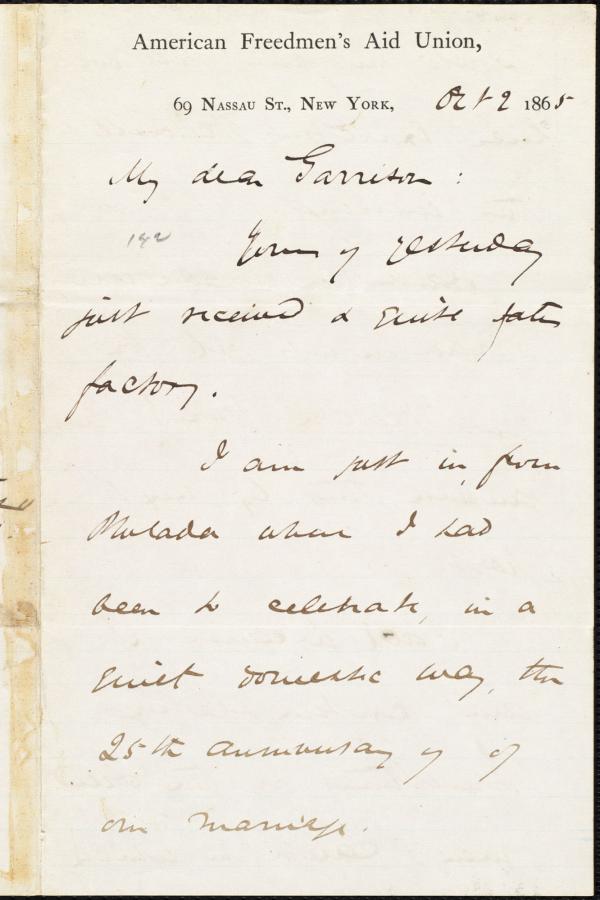 American Freedmen's Aid Union,
69 Nassau St., New York, Oct 2 1865
My dear Garrison:
142
Yours of yesterday
just received & quite satis
factory.
I am just in, from
Philada where I had
been to celebrate, in a
quiet domestic way, the
25th anniversary of of
our marriage.